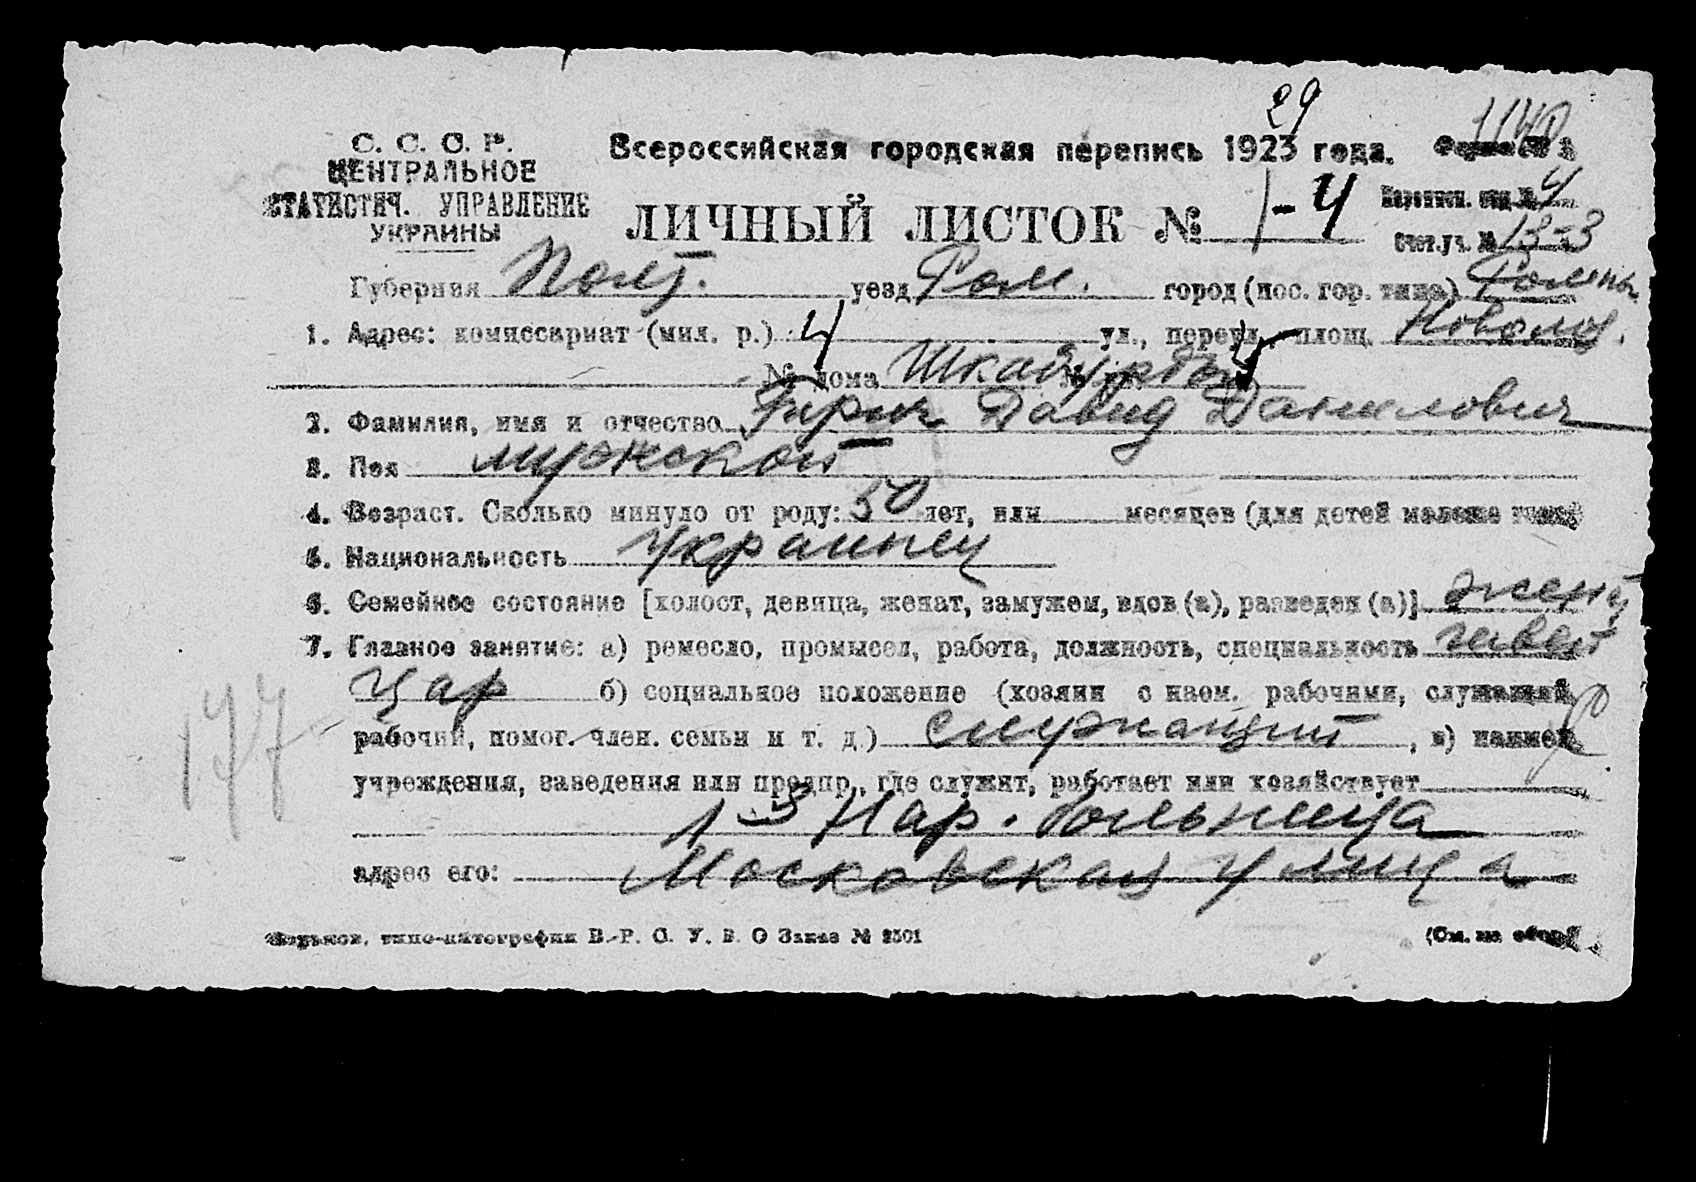 29
1140
С. С. С. Р.
ЦЕНТРАЛЬНОЕ
СТАТИСТИЧ. УПРАВЛЕНИЕ
УКРАИНЫ
Всероссийская городская перепись 1923 года.
ЛИЧНЫЙ ЛИСТОК № 1-4
Переписн. отд. № 4
Счет. уч. № 13-3
Губерния Полт. уезд Ром. город (пос. гор. типа) Ромены
1. Адрес: комиссариат (мил. р.) 4 ул., переул., площ.
№ дома
2. Фамилия, имя и отчество Давид Данилович
3. Пол мужской
4. Возраст. Сколько минуло от роду: 50 лет, или месяцев (для детей моложе года)
5. Национальность Украинец
6. Семейное состояние [холост, девица, женат, замужем, вдов (а), разведен (а)]
7. Главное занятие: а) ремесло, промысел, работа, должность, специальность швей
цар б) социальное положение (хозяин с наем. рабочими, служащий,
рабочий, помог. член. семьи и т. д.) служащий, в) наимен.
учреждения, заведения или предпр., где служит, работает или хозяйствует
1 Нар. больница
адрес его: Московская улица
177
Харьков, типо-литография В.-Р. С. У. В. О Заказ № 2501
(См. на обор.)